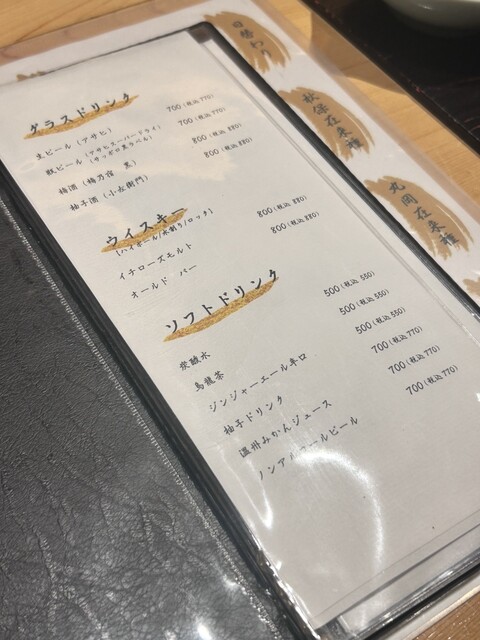 グラスドリンク
生ビール（アサヒ） 700（税込 770）
瓶ビール（アサヒスーパードライ） 700（税込 770）
（サッポロ黒ラベル）
梅酒（梅乃宿 黒） 800（税込 880）
柚子酒（小左衛門） 800（税込 880）
ウイスキー
（ハイボール/水割り/ロック）
イチローズモルト 800（税込 880）
オールド パー 800（税込 880）
ソフトドリンク
炭酸水 500（税込 550）
烏龍茶 500（税込 550）
ジンジャーエール辛口 500（税込 550）
柚子ドリンク 700（税込 770）
温州みかんジュース 700（税込 770）
ノンアルコールビール 700（税込 770）
日替わり
秋保在来種
丸岡在来種